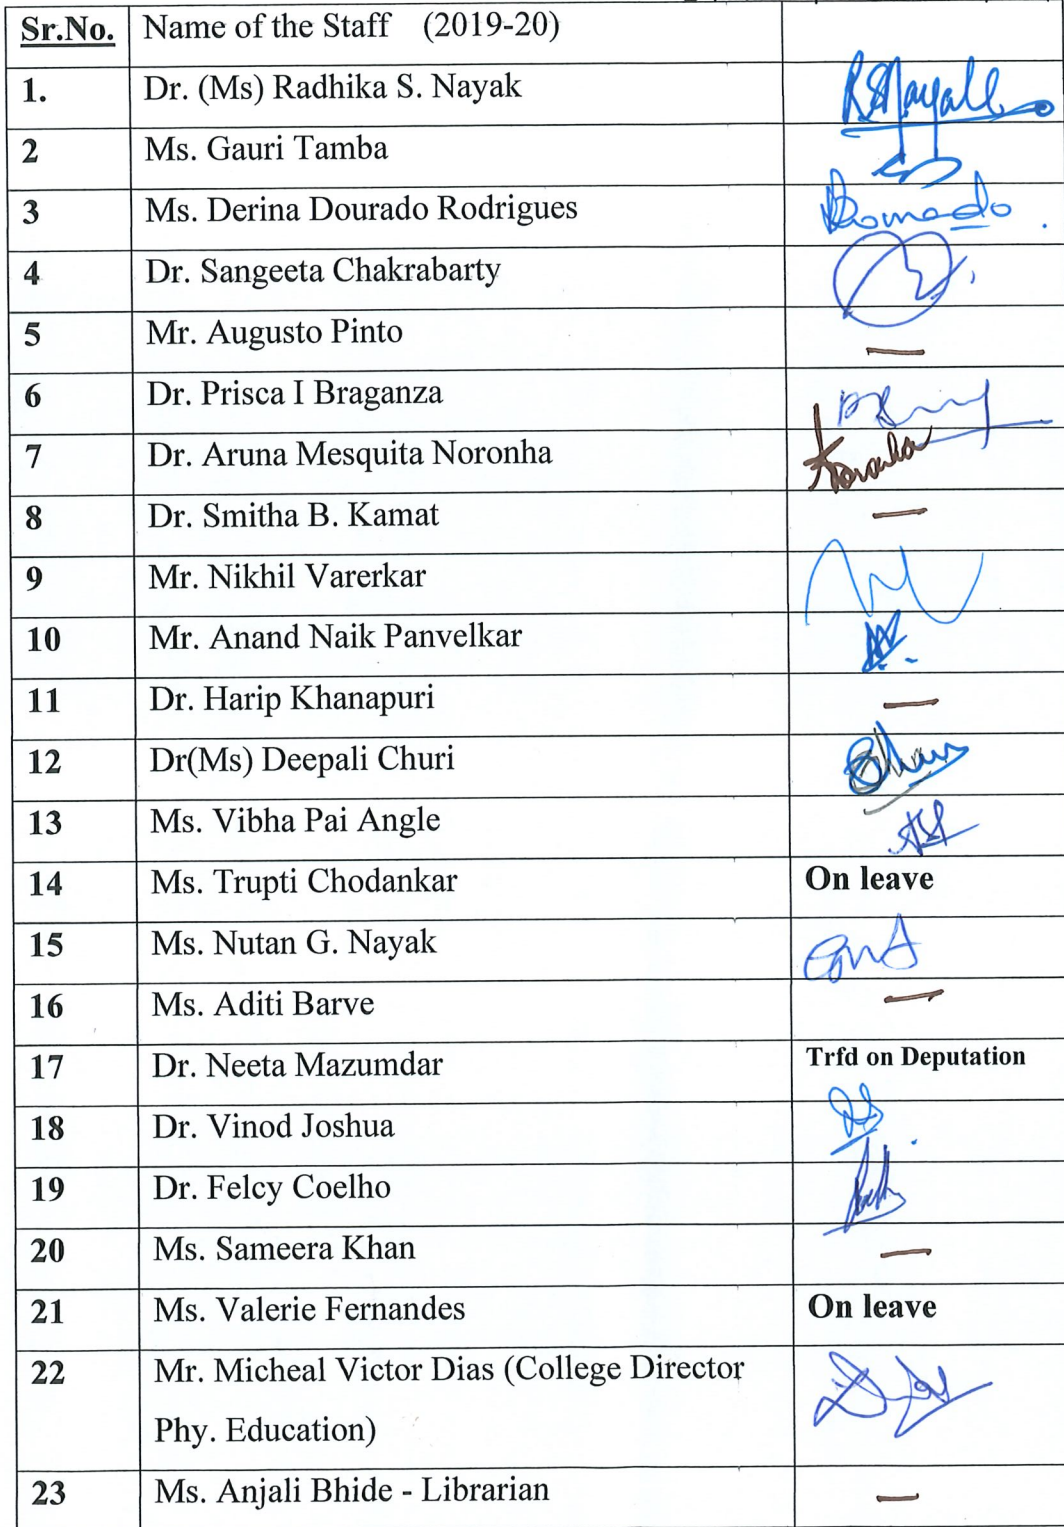 Sr.No. Name of the Staff (2019-20)
1. Dr. (Ms) Radhika S. Nayak RSNayak
2 Ms. Gauri Tamba
3 Ms. Derina Dourado Rodrigues
4 Dr. Sangeeta Chakrabarty
5 Mr. Augusto Pinto —
6 Dr. Prisca I Braganza
7 Dr. Aruna Mesquita Noronha Noronha
8 Dr. Smitha B. Kamat —
9 Mr. Nikhil Varerkar
10 Mr. Anand Naik Panvelkar
11 Dr. Harip Khanapuri —
12 Dr(Ms) Deepali Churi
13 Ms. Vibha Pai Angle
14 Ms. Trupti Chodankar On leave
15 Ms. Nutan G. Nayak
16 Ms. Aditi Barve —
17 Dr. Neeta Mazumdar Trfd on Deputation
18 Dr. Vinod Joshua
19 Dr. Felcy Coelho
20 Ms. Sameera Khan —
21 Ms. Valerie Fernandes On leave
22 Mr. Micheal Victor Dias (College Director
Phy. Education)
23 Ms. Anjali Bhide - Librarian —